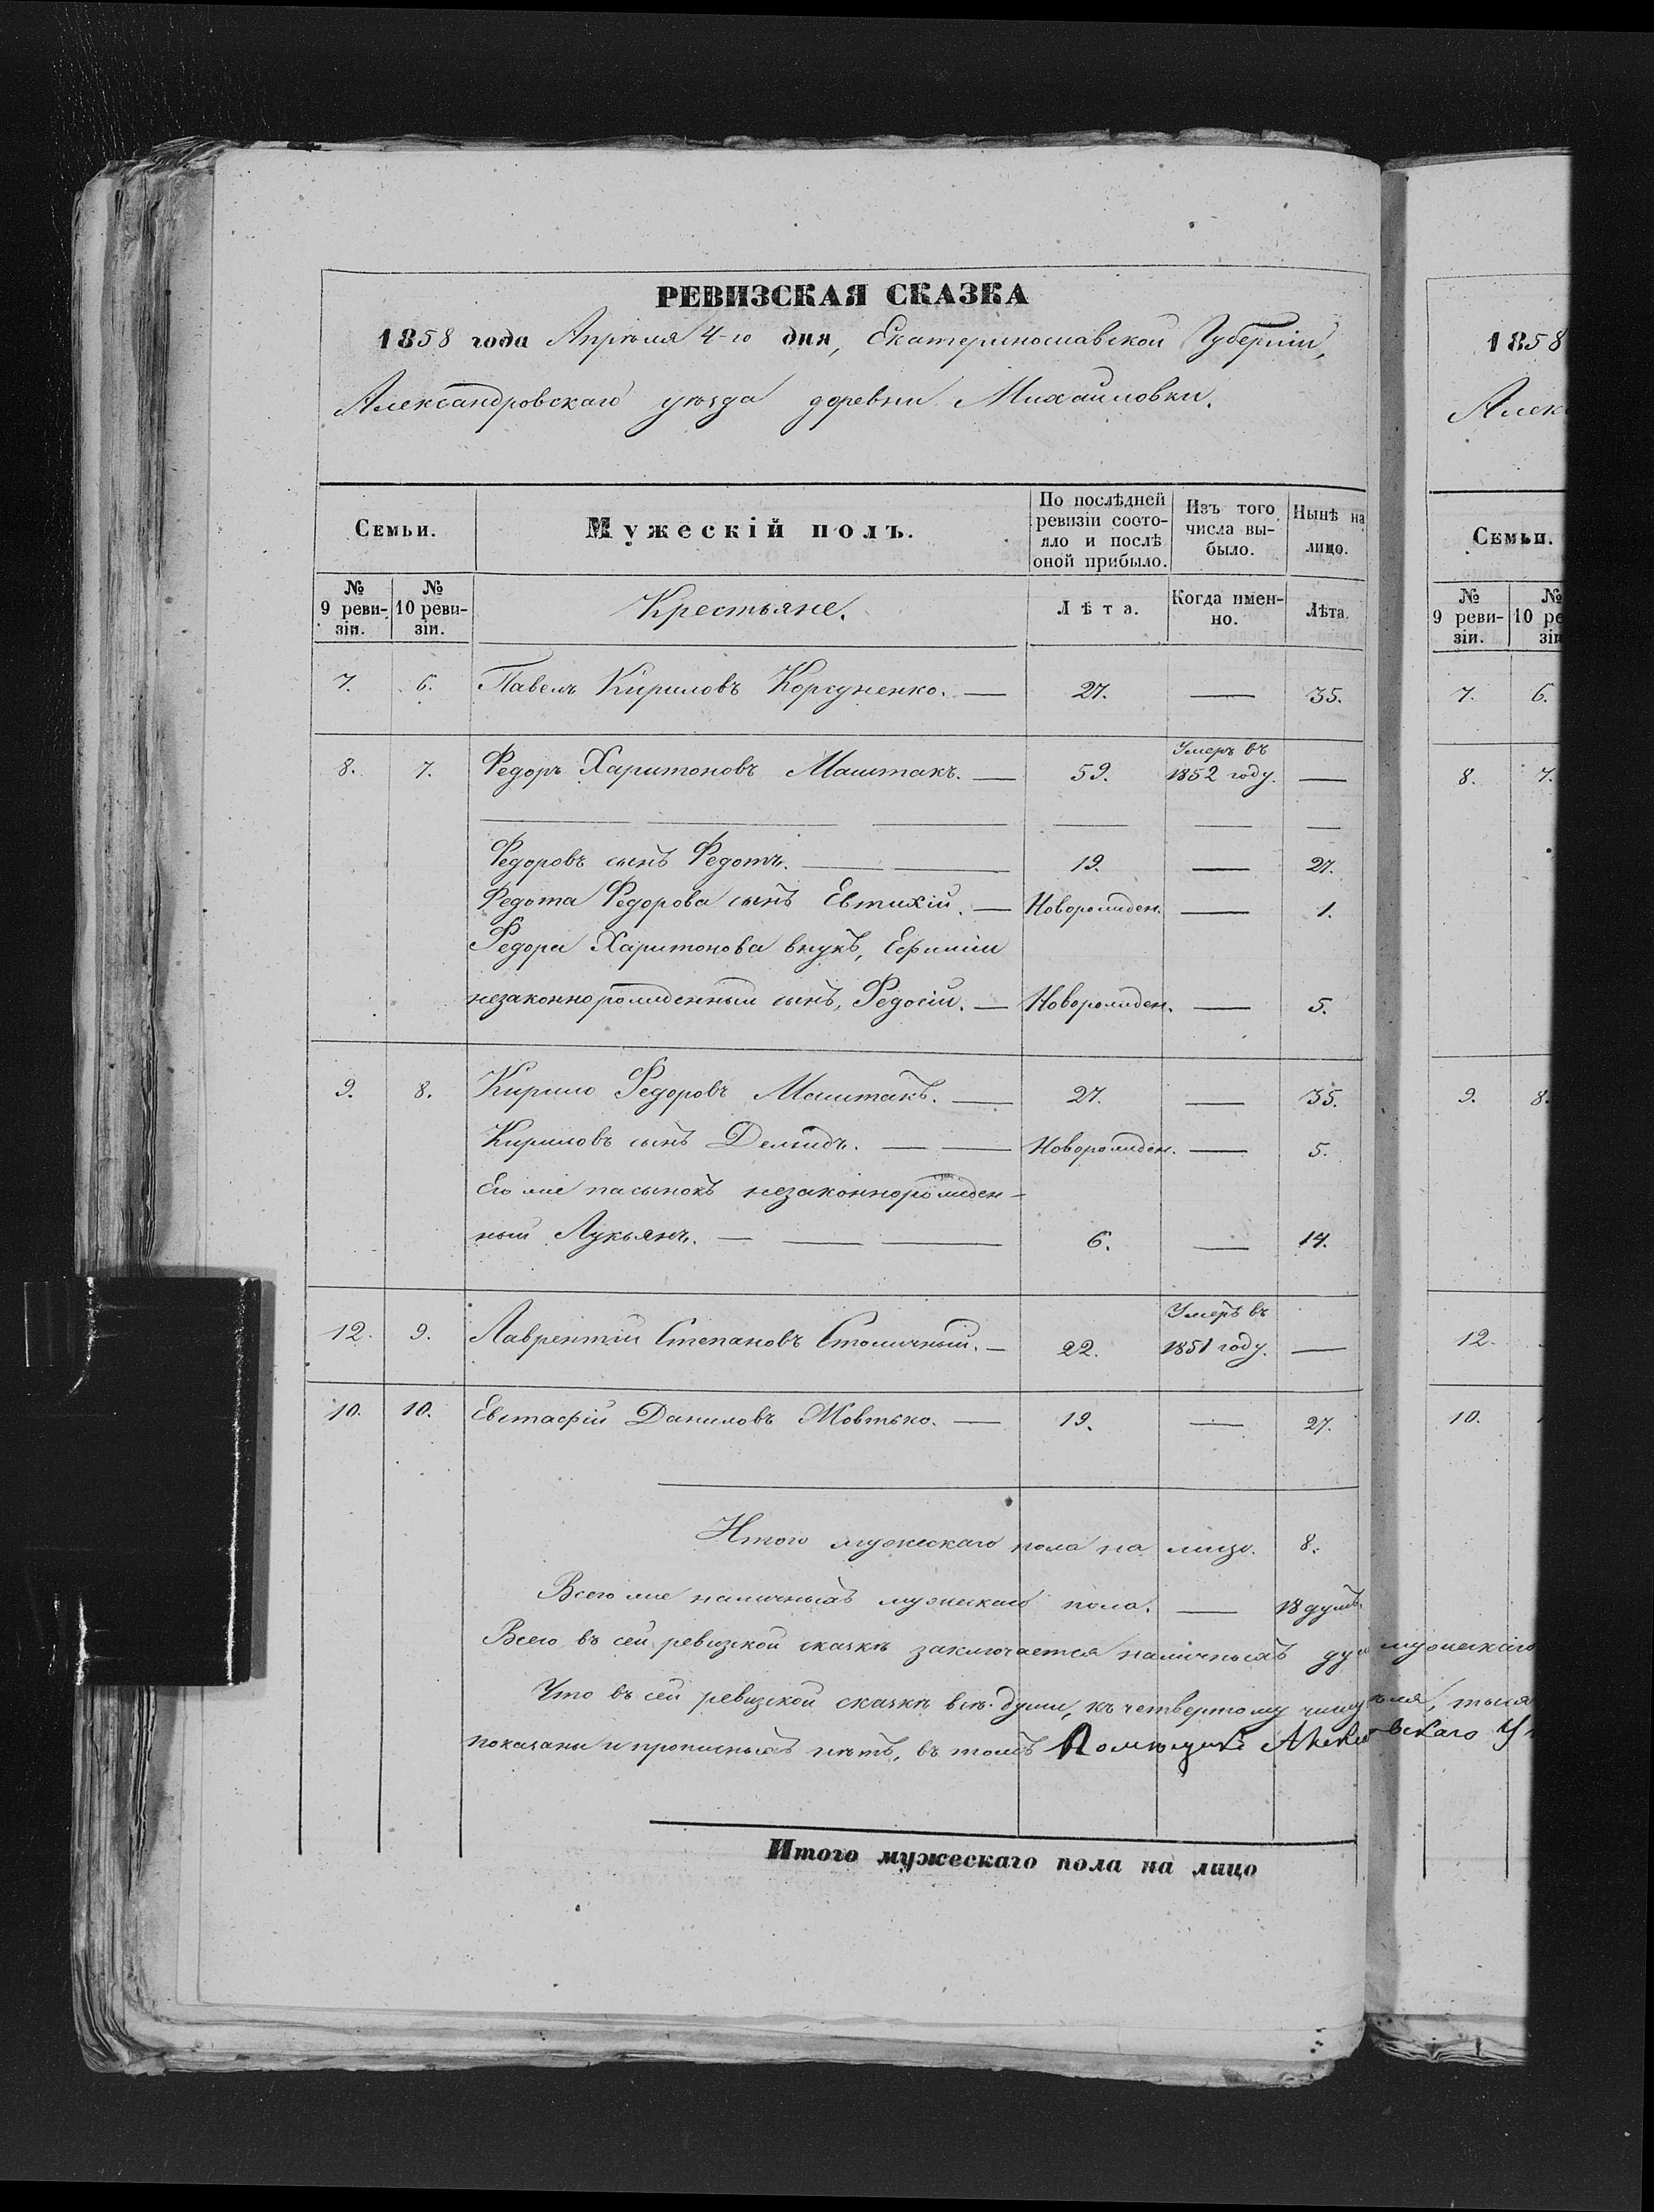 РЕВИЗСКАЯ СКАЗКА
1858 года Апрѣля 4-го дня, Екатеринославской Губерніи,
Александровскаго уѣзда деревни Михайловки.
Семьи.
Мужескій полъ.
По послѣдней ревизіи состояло и послѣ оной прибыло.
Изъ того числа вы-было.
Нынѣ на лицо.
№ 9 реви-зіи.
№ 10 реви-зіи.
Крестьяне.
Лѣта.
Когда имен-но.
Лѣта.
7. 6. Павелъ Кириловъ Корсуненко. — 27. — 35.
8. 7. Федоръ Харитоновъ Маштакъ. — 59. Умеръ въ 1852 году. —
Федоровъ сынъ Федотъ. — 19. — 27.
Федота Федорова сынъ Евтихій. — Новорожден. — 1.
Федора Харитонова внукъ, Ефиміи
незаконнорожденный сынъ, Федосій. — Новорожден. — 5.
9. 8. Кирило Федоровъ Маштакъ. — 27. — 35.
Кириловъ сынъ Демидъ. — Новорожден. — 5.
Его же пасынокъ незаконнорожден-
ный Лукьянъ. — 6. — 14.
12. 9. Лаврентій Степановъ Столичный. — 22. Умеръ въ 1851 году. —
10. 10. Евстафій Даниловъ Мовтько. — 19. — 27.
Итого мужескаго пола на лицо. 8.
Всего же наличныхъ мужескаго пола. — 18 душъ.
Всего въ сей ревизской сказкѣ заключается наличныхъ ду
Что въ сей ревизской сказкѣ всѣ души, къ четвертому числу
показаны и прописныхъ нѣтъ, въ томъ
Итого мужескаго пола на лицо
1858
Алек
Семьи.
№ 9 реви-зіи.
№ 10 ре зіи
7. 6.
8. 7.
9. 8.
12.
10.
мужескаго
вскаго